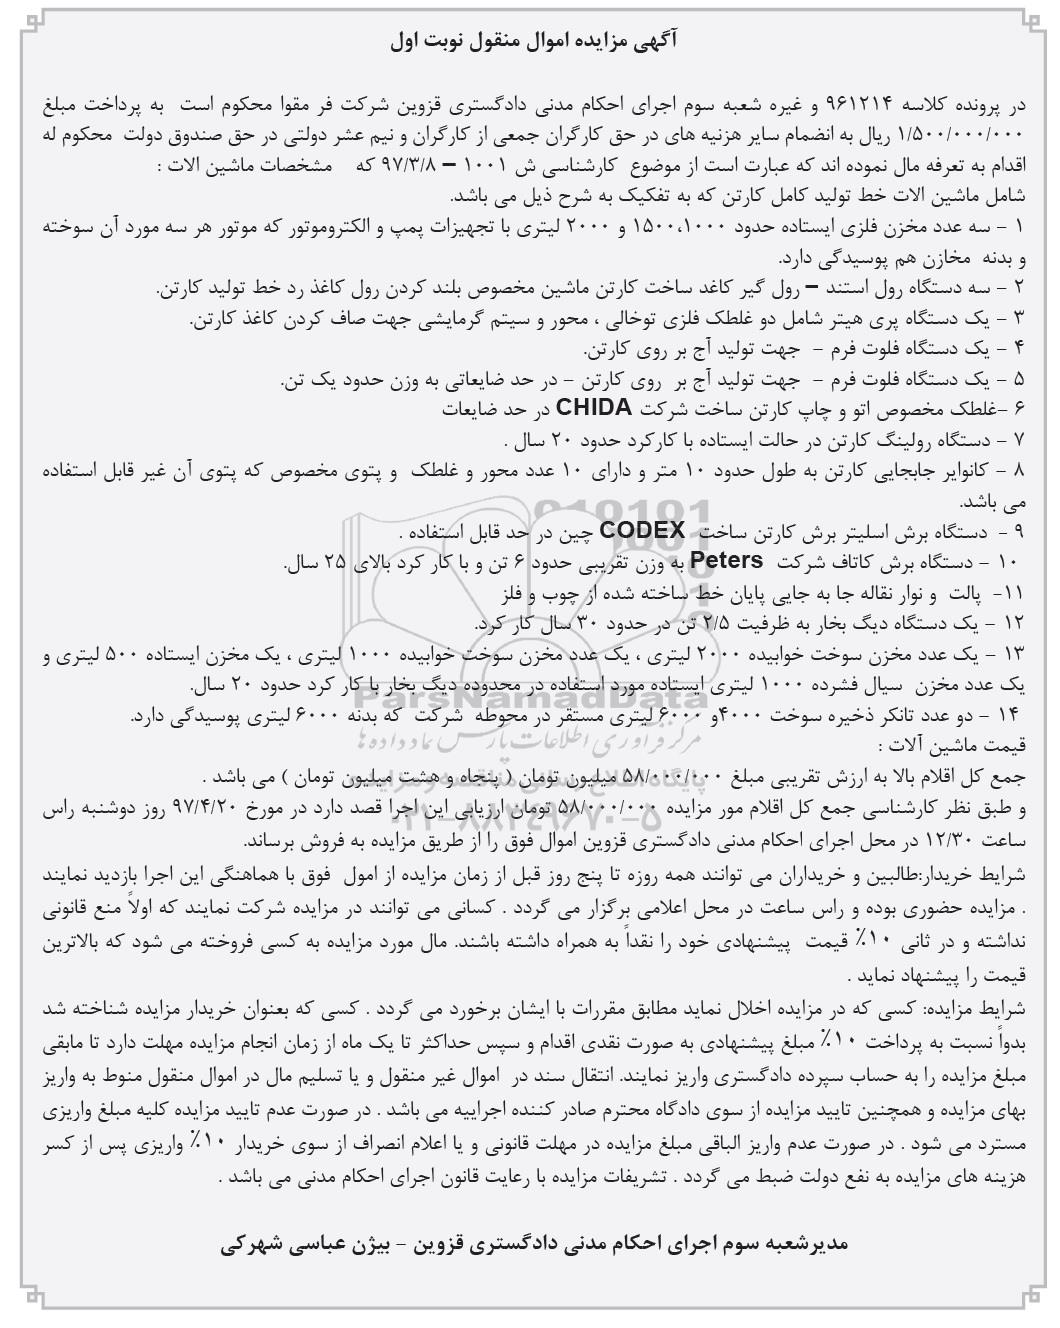 آگهی مزایده اموال منقول نوبت اول
در پرونده کلاسه ۹۶۱۲۱۴ و غیره شعبه سوم اجرای احکام مدنی دادگستری قزوین شرکت فر مقوا محکوم است به پرداخت مبلغ
۱/۵۰۰/۰۰۰/۰۰۰ ریال به انضمام سایر هزنیه های در حق کارگران جمعی از کارگران و نیم عشر دولتی در حق صندوق دولت محکوم له
اقدام به تعرفه مال نموده اند که عبارت است از موضوع کارشناسی ش ۱۰۰۱ – ۹۷/۳/۸ که مشخصات ماشین الات :
شامل ماشین الات خط تولید کامل کارتن که به تفکیک به شرح ذیل می باشد.
۱ - سه عدد مخزن فلزی ایستاده حدود ۱۵۰۰،۱۰۰۰ و ۲۰۰۰ لیتری با تجهیزات پمپ و الکتروموتور که موتور هر سه مورد آن سوخته
و بدنه مخازن هم پوسیدگی دارد.
۲ - سه دستگاه رول استند – رول گیر کاغد ساخت کارتن ماشین مخصوص بلند کردن رول کاغذ رد خط تولید کارتن.
۳ - یک دستگاه پری هیتر شامل دو غلطک فلزی توخالی ، محور و سیتم گرمایشی جهت صاف کردن کاغذ کارتن.
۴ - یک دستگاه فلوت فرم - جهت تولید آج بر روی کارتن.
۵ - یک دستگاه فلوت فرم - جهت تولید آج بر روی کارتن - در حد ضایعاتی به وزن حدود یک تن.
۶ -غلطک مخصوص اتو و چاپ کارتن ساخت شرکت CHIDA در حد ضایعات
۷ - دستگاه رولینگ کارتن در حالت ایستاده با کارکرد حدود ۲۰ سال .
۸ - کانوایر جابجایی کارتن به طول حدود ۱۰ متر و دارای ۱۰ عدد محور و غلطک و پتوی مخصوص که پتوی آن غیر قابل استفاده
می باشد.
۹ - دستگاه برش اسلیتر برش کارتن ساخت CODEX چین در حد قابل استفاده .
۱۰ - دستگاه برش کاتاف شرکت Peters به وزن تقریبی حدود ۶ تن و با کار کرد بالای ۲۵ سال.
۱۱- پالت و نوار نقاله جا به جایی پایان خط ساخته شده از چوب و فلز
۱۲ - یک دستگاه دیگ بخار به ظرفیت ۲/۵ تن در حدود ۳۰ سال کار کرد.
۱۳ - یک عدد مخزن سوخت خوابیده ۲۰۰۰ لیتری ، یک عدد مخزن سوخت خوابیده ۱۰۰۰ لیتری ، یک مخزن ایستاده ۵۰۰ لیتری و
یک عدد مخزن سیال فشرده ۱۰۰۰ لیتری ایستاده مورد استفاده در محدوده دیگ بخار با کار کرد حدود ۲۰ سال.
ParsNamadData
۱۴ - دو عدد تانکر ذخیره سوخت ۴۰۰۰و ۶۰۰۰ لیتری مستقر در محوطه شرکت که بدنه ۶۰۰۰ لیتری پوسیدگی دارد.
مرکز فرآوری اطلاعات پارس نماد داده ها
قیمت ماشین آلات :
جمع کل اقلام بالا به ارزش تقریبی مبلغ ۵۸/۰۰۰/۰۰۰ میلیون تومان ( پنجاه و هشت میلیون تومان ) می باشد .
پایگاه اطلاع رسانی مناقصه و مزایده
و طبق نظر کارشناسی جمع کل اقلام مور مزایده ۵۸/۰۰۰/۰۰۰ تومان ارزیابی این اجرا قصد دارد در مورخ ۹۷/۴/۲۰ روز دوشنبه راس
۰۲۱-۸۸۳۴۹۶۷۰-۵
ساعت ۱۲/۳۰ در محل اجرای احکام مدنی دادگستری قزوین اموال فوق را از طریق مزایده به فروش برساند.
شرایط خریدار:طالبین و خریداران می توانند همه روزه تا پنج روز قبل از زمان مزایده از امول فوق با هماهنگی این اجرا بازدید نمایند
. مزایده حضوری بوده و راس ساعت در محل اعلامی برگزار می گردد . کسانی می توانند در مزایده شرکت نمایند که اولاً منع قانونی
نداشته و در ثانی ۱۰٪ قیمت پیشنهادی خود را نقداً به همراه داشته باشند. مال مورد مزایده به کسی فروخته می شود که بالاترین
قیمت را پیشنهاد نماید .
شرایط مزایده: کسی که در مزایده اخلال نماید مطابق مقررات با ایشان برخورد می گردد . کسی که بعنوان خریدار مزایده شناخته شد
بدواً نسبت به پرداخت ۱۰٪ مبلغ پیشنهادی به صورت نقدی اقدام و سپس حداکثر تا یک ماه از زمان انجام مزایده مهلت دارد تا مابقی
مبلغ مزایده را به حساب سپرده دادگستری واریز نمایند. انتقال سند در اموال غیر منقول و یا تسلیم مال در اموال منقول منوط به واریز
بهای مزایده و همچنین تایید مزایده از سوی دادگاه محترم صادر کننده اجراییه می باشد . در صورت عدم تایید مزایده کلیه مبلغ واریزی
مسترد می شود . در صورت عدم واریز الباقی مبلغ مزایده در مهلت قانونی و یا اعلام انصراف از سوی خریدار ۱۰٪ واریزی پس از کسر
هزینه های مزایده به نفع دولت ضبط می گردد . تشریفات مزایده با رعایت قانون اجرای احکام مدنی می باشد .
مدیرشعبه سوم اجرای احکام مدنی دادگستری قزوین - بیژن عباسی شهرکی